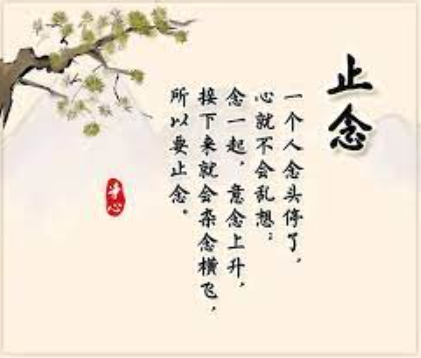 止念
一个人念头停了，
心就不会乱想；
念一起，意念上升，
接下来就会杂念横飞，
所以要止念。